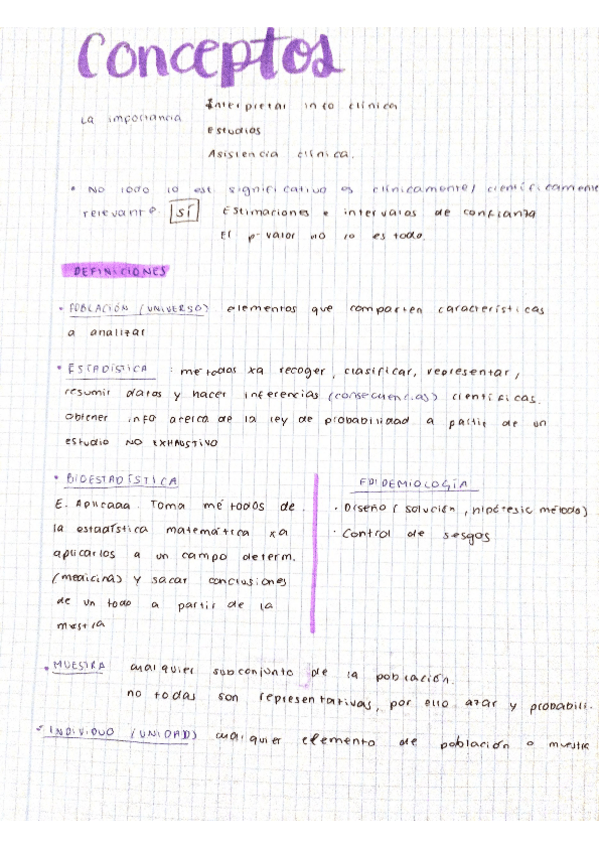 Conceptos
Interpretar info clínica
La importancia
Estudios
Asistencia clínica.
• No todo lo est. significativo es clínicamente/científicamente
relevante. SÍ Estimaciones e intervalos de confianza
El p-valor no lo es todo.
DEFINICIONES
• POBLACIÓN (UNIVERSO) elementos que comparten características
a analizar
• ESTADÍSTICA : métodos xa recoger, clasificar, representar,
resumir datos y hacer inferencias (consecuencias) científicas.
Obtener info acerca de la ley de probabilidad a partir de un
estudio NO EXHAUSTIVO
• BIOESTADÍSTICA
E. Aplicada. Toma métodos de
la estadística matemática xa
aplicarlos a un campo determ.
(medicina) y sacar conclusiones
de un todo a partir de la
mestra
EPIDEMIOLOGÍA
· Diseño (solución, hipótesis método)
· Control de sesgos
• MUESTRA cualquier subconjunto de la población.
no todas son representativas, por ello azar y probabili.
• INDIVIDUO (UNIDAD) cualquier elemento de población o muestra